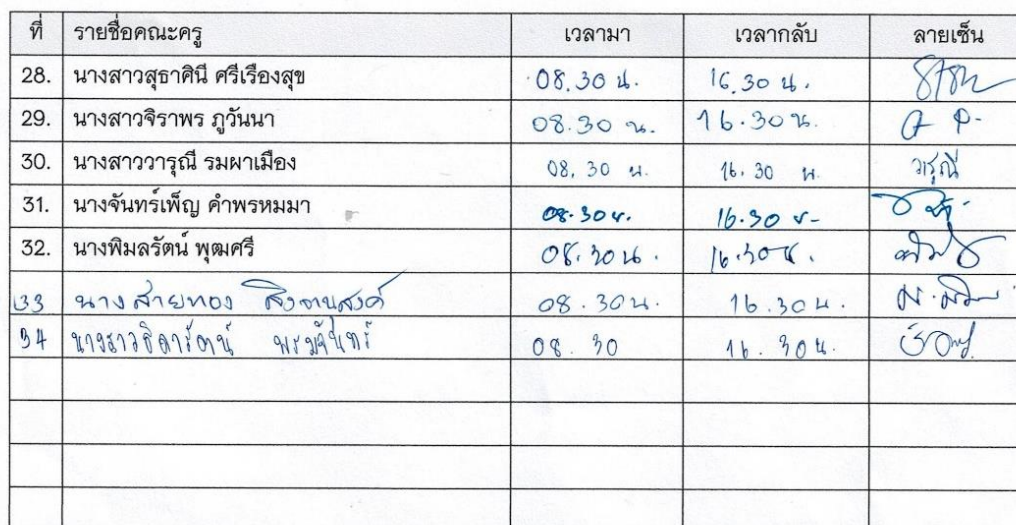 ที่ รายชื่อคณะครู เวลามา เวลากลับ ลายเซ็น
28. นางสาวสุธาศินี ศรีเรืองสุข 08.30 น. 16.30 น.
29. นางสาวจิราพร ภูวันนา 08.30 น. 16.30 น.
30. นางสาววารุณี รมผาเมือง 08.30 น. 16.30 น. วารุณี
31. นางจันทร์เพ็ญ คำพรหมมา 08.30 น. 16.30 น.
32. นางพิมลรัตน์ พุฒศรี 08.30 น. 16.30 น.
33 นางสายทอง 08.30 น. 16.30 น.
34 นางสาวธิดารัตน์ พรมจันทร์ 08.30 16.30 น.